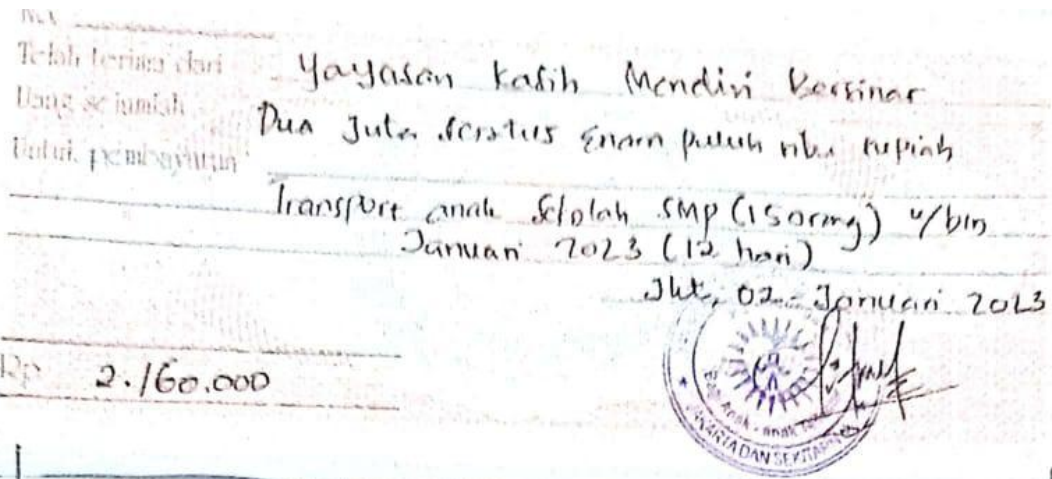 Telah terima dari Yayasan Kasih Mendiri Bersinar
Uang sejumlah Dua Juta seratus Enam puluh ribu rupiah
Untuk pembayaran
Transport anak Sekolah SMP (15 orang) u/bln
Januari 2023 (12 hari)
Jkt, 02 - Januari 2023
Rp 2.160.000
Anak - anak
JAKARTA DAN SEKITARNYA